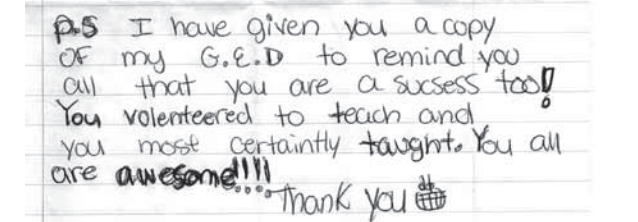 P.S I have given you a copy
OF my G.E.D to remind you
all that you are a sucsess too!
You volenteered to teach and
you most certaintly taught. You all
are awesome!!!!
Thank you